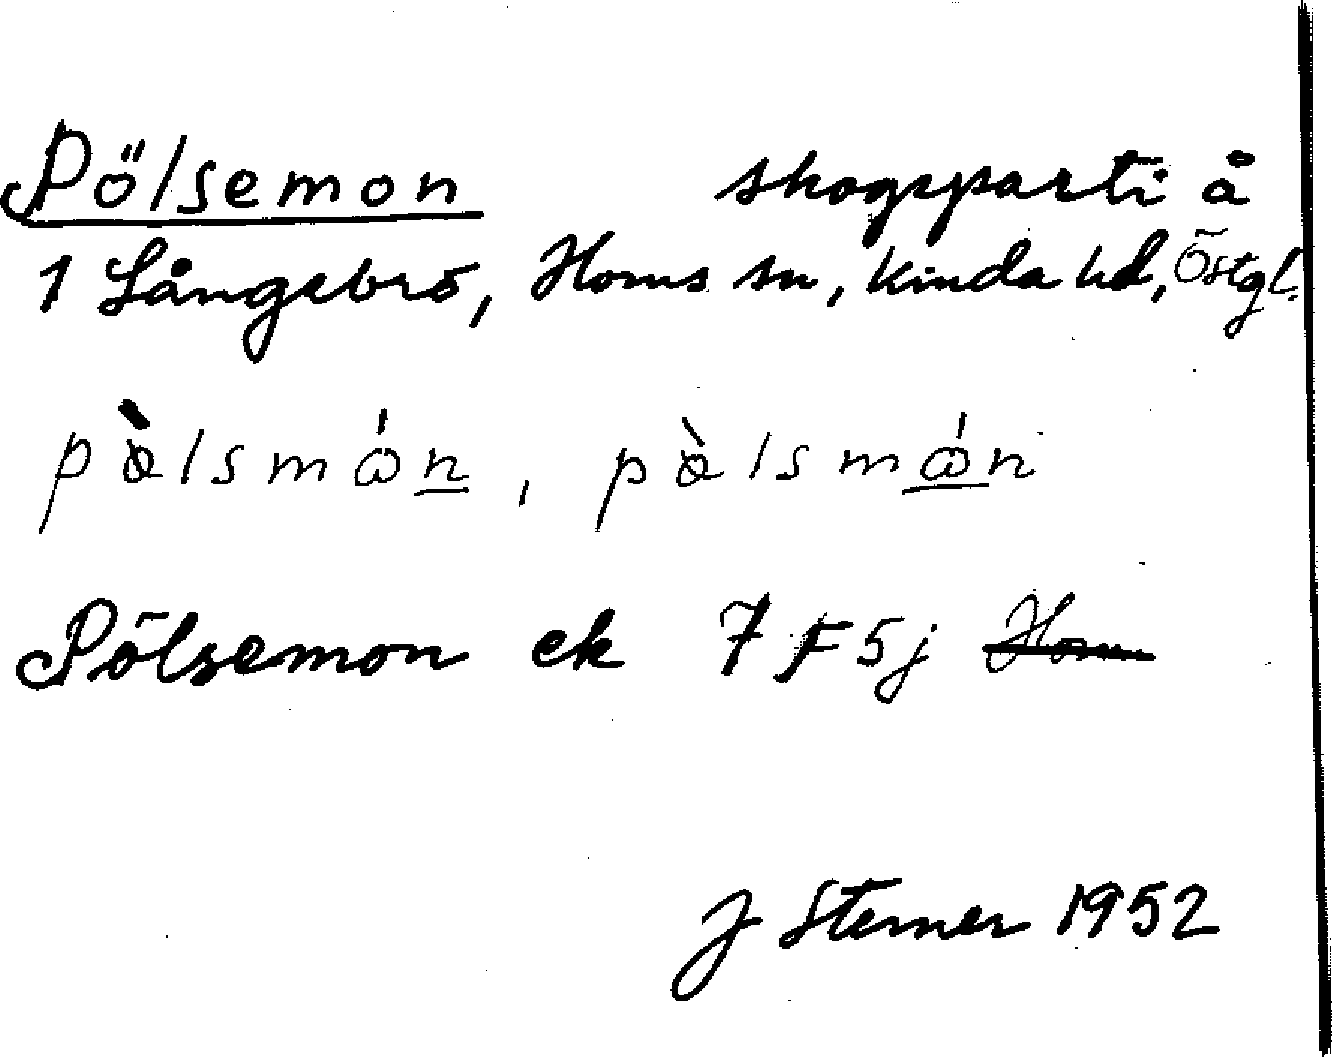 Pölsemon skogsparti å
1 Långebro, Horns sn, Kinda hd, Östgl.
pɵ̀lsmón, pɵ̀lsmón
Pölsemon ek 7F5j Horn
J Sterner 1952